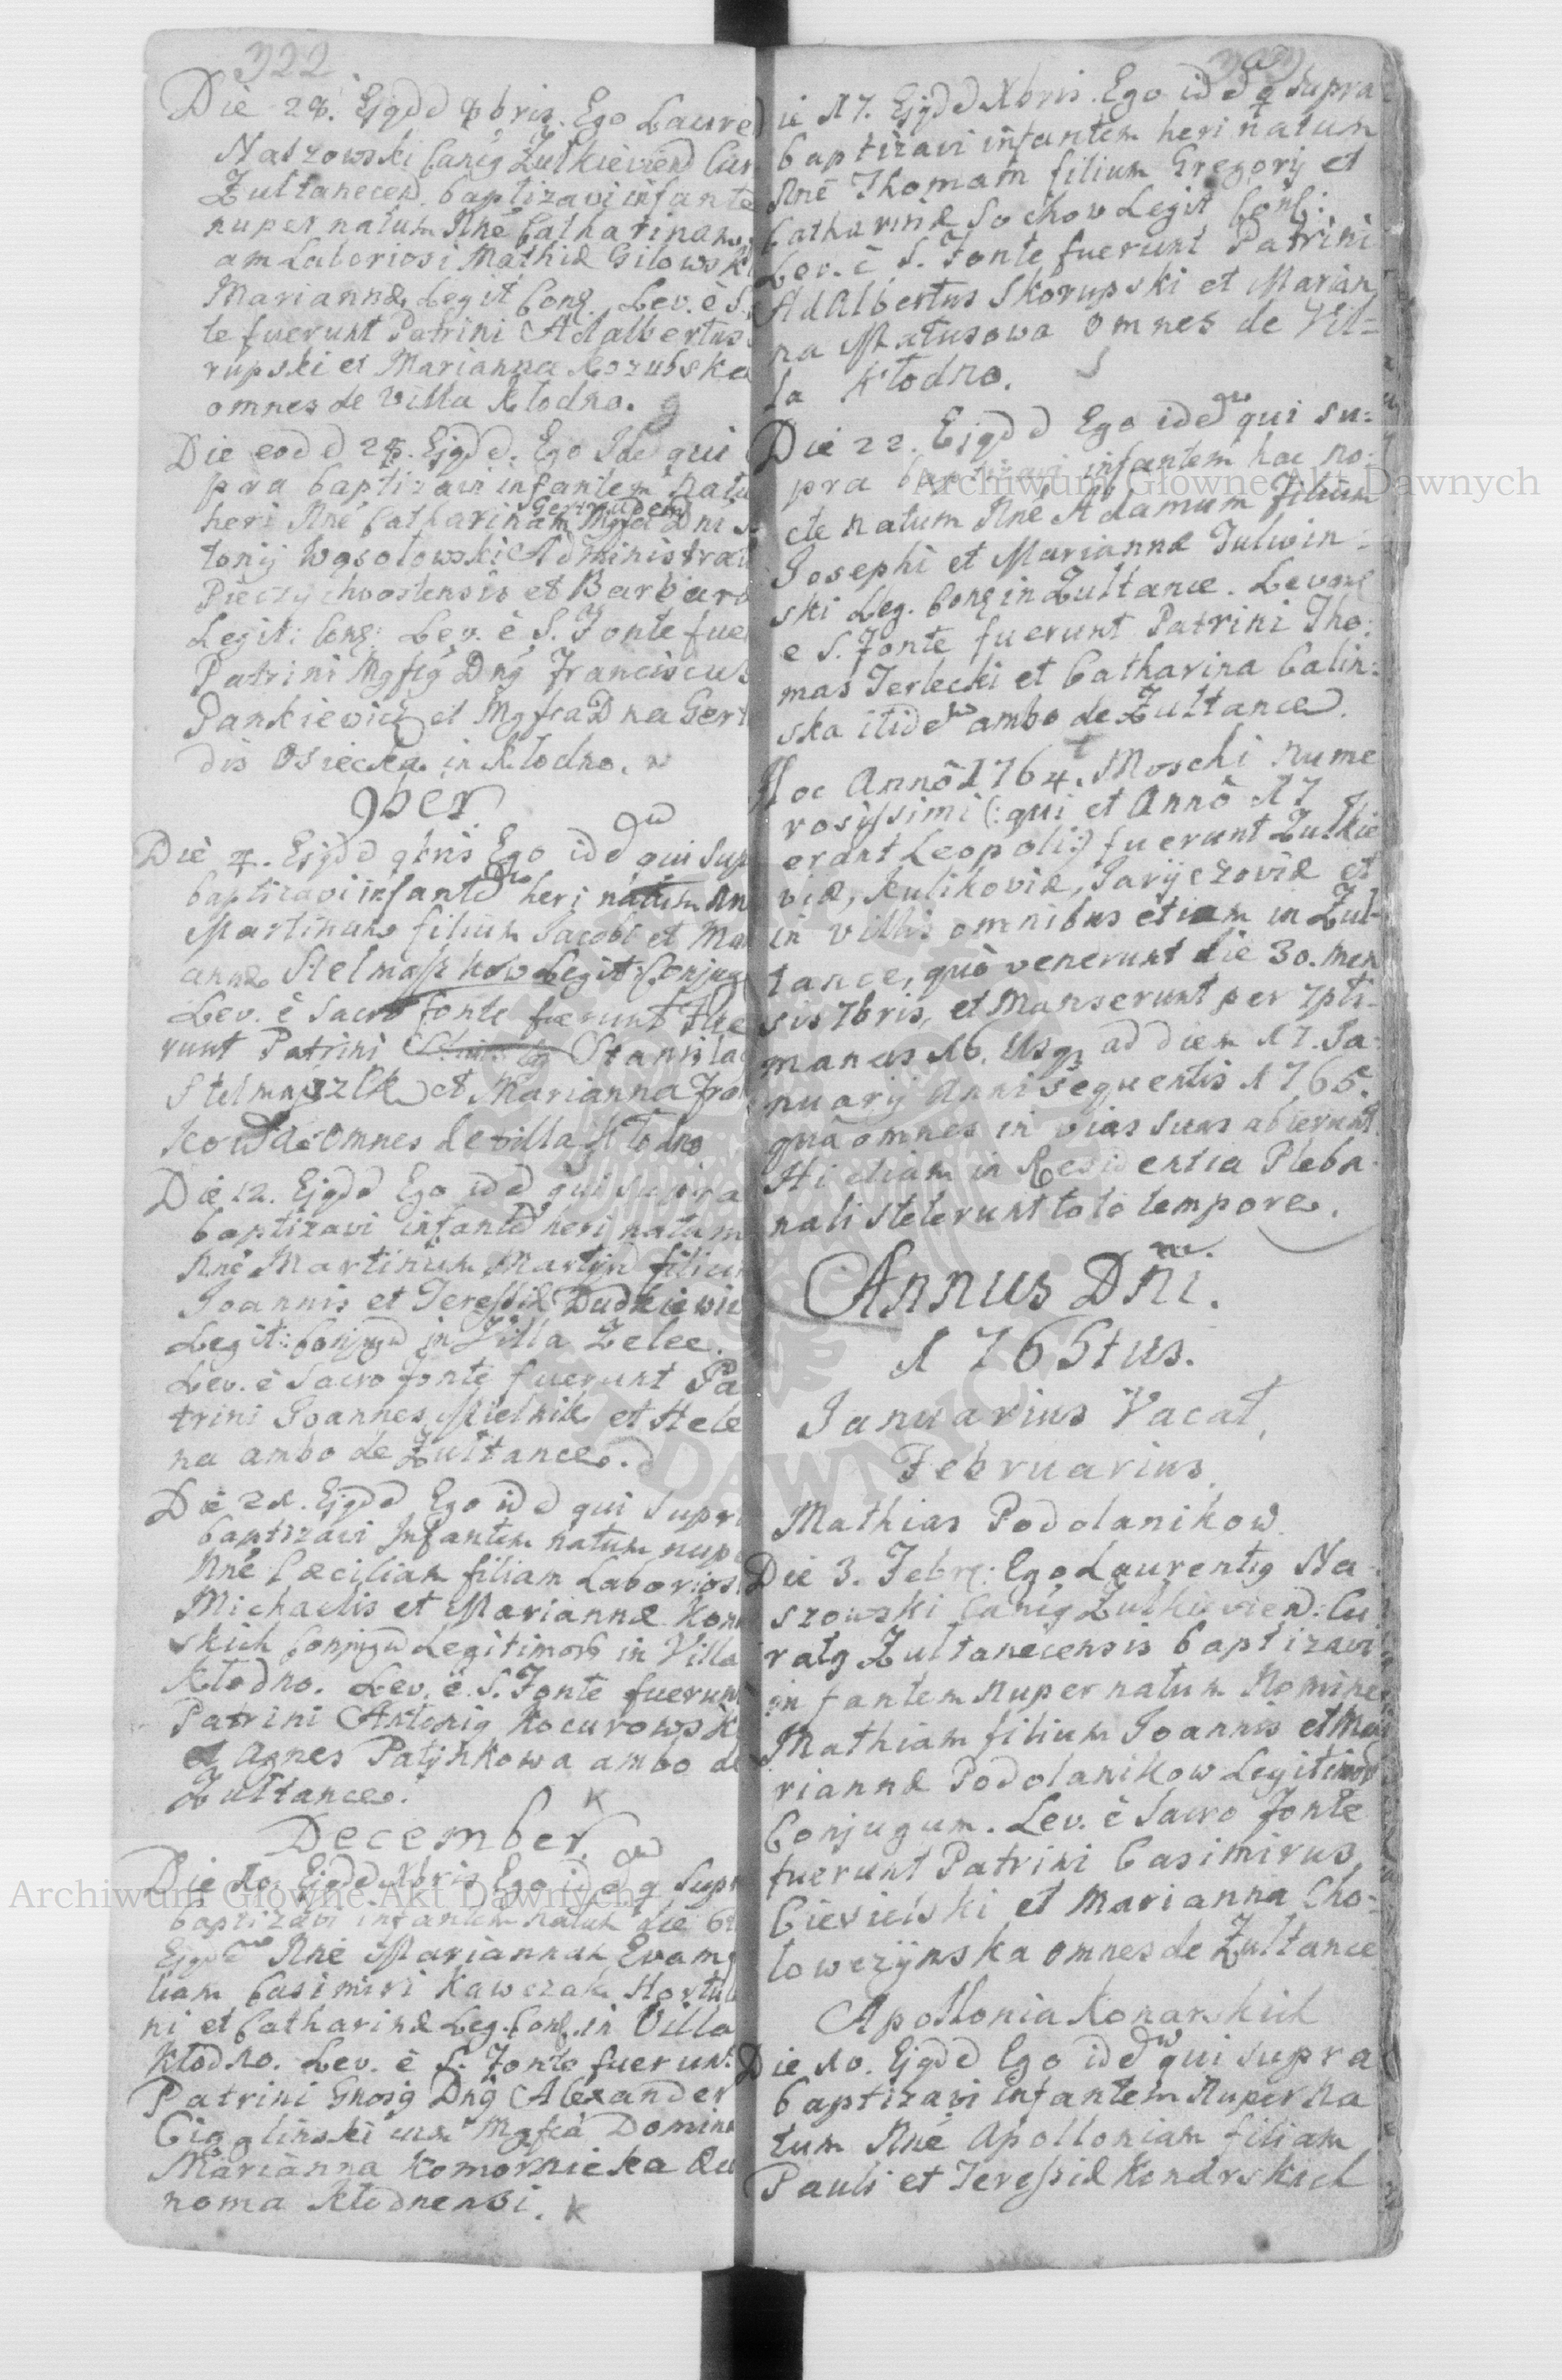 322
Die 28. Ejqdd 8bris. Ego Laure
Naszowski Canig Zulkieviend Cur
Zultanecen. baptizavi infante
nuper natum Nne Catharinam
am Laboriosi Mathiæ Gilowski
Mariannæ Legit Conj. Lev. è S.
te fuerunt Patrini Adalbertus
rupski et Marianna Kozubska
omnes de Villa Kłodno.
Die eodd 28. Ejqdd. Ego Ide qui
pra baptizavi infantem natu
heri Nne Catharinam Mgfci Dni
Gertrudem
tonij Wąsołowski Administrat
Pieczychvostensis et Barbara
Legit: Conj: Lev. è S. Fonte fue
Patrini Mgfcg Dng Franciscus
Pankievicz et Mgfca Dna Gert
dis Osiecka in Kłodno.
9ber
Die 4. Ejqdd 9bris Ego idd qui sup
baptizavi infantd heri natum Nn
Martinum filium Jacobi et Ma
annæ Stelmaszkow Legit: Conjug
Lev. è Sacro fonte fuerunt Fue
runt Patrini Stanisla
Stelmaszek et Marianna Fra
kowa Omnes de villa Kłodno
Die 12. Ejqdd Ego idd qui supra
baptizavi infantd heri natum
Nne Martinum Martijn filium
Joannis et Teressiæ Dudkievic
Legit: Conjugd in Villa Zelee.
Lev. è Sacro fonte fuerunt Pa
trini Joannes Mielnik et Hele
na ambo de Zultance.
Die 21. Ejqdd Ego idd qui supr
baptizavi Infantem natum nupe
Nne Cæciliam filiam Laborios
Michaelis et Mariannæ Kon
skich Conjugd Legitimor in Villa
Kłodno. Lev. è S. Fonte fuerun
Patrini Antonig Kocurowsk
et Agnes Patynkowa ambo de
Zultance.
December
Die 10. Ejqdd Xbris Ego idd q supr
baptizavi infantem natum die 6
Ejqdd Nne Mariannam Evam
liam Casimiri Kawczak Hortul
ni et Catharinæ Leg. Conj. in Villa
Kłodno. Lev. è S. Fonte fuerunt
Patrini Gnosg Dng Alexander
Cieglinski cum Mgfca Domina
Marianna Komornicka Œu
noma Kłodnensi.
Die 17. Ejqdd Xbris. Ego idd q supra
baptizavi infantem heri natum
Nne Thomam filium Gregorij et
Catharinæ Sochow Legit Conj:
Lev. è S. Fonte fuerunt Patrini
Adalbertus Skorupski et Marian
na Matusowa omnes de Vil=
la Kłodno.
Die 22. Ejqdd Ego idd qui su=
pra baptizavi infantem hac no=
cte natum Nne Adamum filium
Josephi et Mariannæ Julwin=
ski Leg. Conj in Zultance. Levan
e S. Fonte fuerunt Patrini Tho=
mas Terlecki et Catharina Calin=
ska itide ambo de Zultance.
Hoc Anno 1764. Moschi nume
rosissimi (: qui et Anno 17
erant Leopoli :) fuerunt Zulkie
viæ, Kulikoviæ, Jaryczoviæ et
in villis omnibus etiam in Zul=
tance, quò venerunt die 30. men
sis 7bris, et Manserunt per 7pti=
manas 16. Usq ad diem 17. Ja=
nuarij Anni sequentis 1765.
quâ omnes in vias suas abierunt.
Hi etiam in Residentia Pleba=
nali steterunt toto tempore.
Annus Dni.
1765tus.
Januarius Vacat,
Februarius.
Mathias Podolanikow.
Die 3. Febr: Ego Laurentig Na=
szowski Canig Zulkieviend: Cu
ratg Zultanecensis baptizavi
infantem nuper natum Nomine
Mathiam filium Joannis et Ma
riannæ Podolanikow Legitimor
Conjugum. Lev. è Sacro Fonte
fuerunt Patrini Casimirus
Cievielski et Marianna Cho=
lowczynska omnes de Zultance
Apollonia Konarskich
Die 10. Ejqdd Ego idd qui supra
baptizavi infantem nuper na
tum Nne Apolloniam filiam
Pauli et Teressiæ Konarskich
Archiwum Główne Akt Dawnych
Archiwum Główne Akt Dawnych